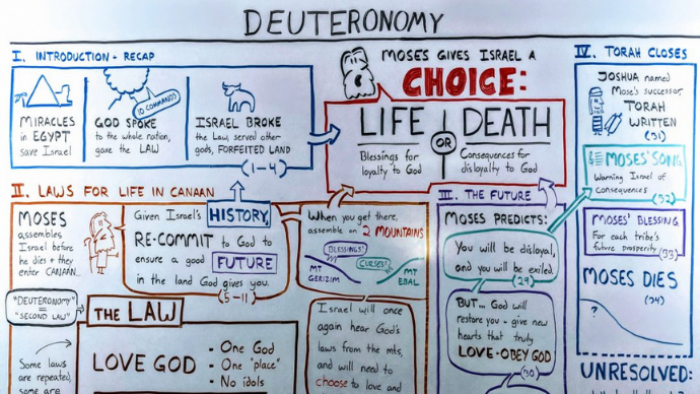 DEUTERONOMY
I. INTRODUCTION - RECAP
MIRACLES
in EGYPT
save Israel
10 COMMANDS
GOD SPOKE
to the whole nation,
gave the LAW
ISRAEL BROKE
the Law, served other
gods, FORFEITED LAND
(1-4)
MOSES GIVES ISRAEL A
CHOICE:
LIFE OR DEATH
Blessings for
loyalty to God
Consequences for
disloyalty to God
IV. TORAH CLOSES
JOSHUA named
Mose's successor
TORAH
WRITTEN
(31)
MOSES' SONG
Warning Israel of
consequences
(32)
MOSES' BLESSING
For each tribe's
future prosperity
(33)
MOSES DIES
(34)
?
UNRESOLVED:
II. LAWS FOR LIFE IN CANAAN
MOSES
assembles
Israel before
he dies + they
enter CANAAN...
Given Israel's HISTORY,
RE-COMMIT to God to
ensure a good FUTURE
in the land God gives you.
(5-11)
When you get there,
assemble on 2 MOUNTAINS
BLESSINGS!
CURSES!
MT
GERIZIM
MT
EBAL
Israel will once
again hear God's
laws from the mts,
and will need to
choose to love and
"DEUTERONOMY"
=
"SECOND LAW"
Some laws
are repeated,
some are
THE LAW
LOVE GOD
- One God
- One "place"
- No idols
III. THE FUTURE
MOSES PREDICTS:
You will be disloyal,
and you will be exiled.
(29)
BUT... God will
restore you - give new
hearts that truly
LOVE + OBEY GOD
(30)